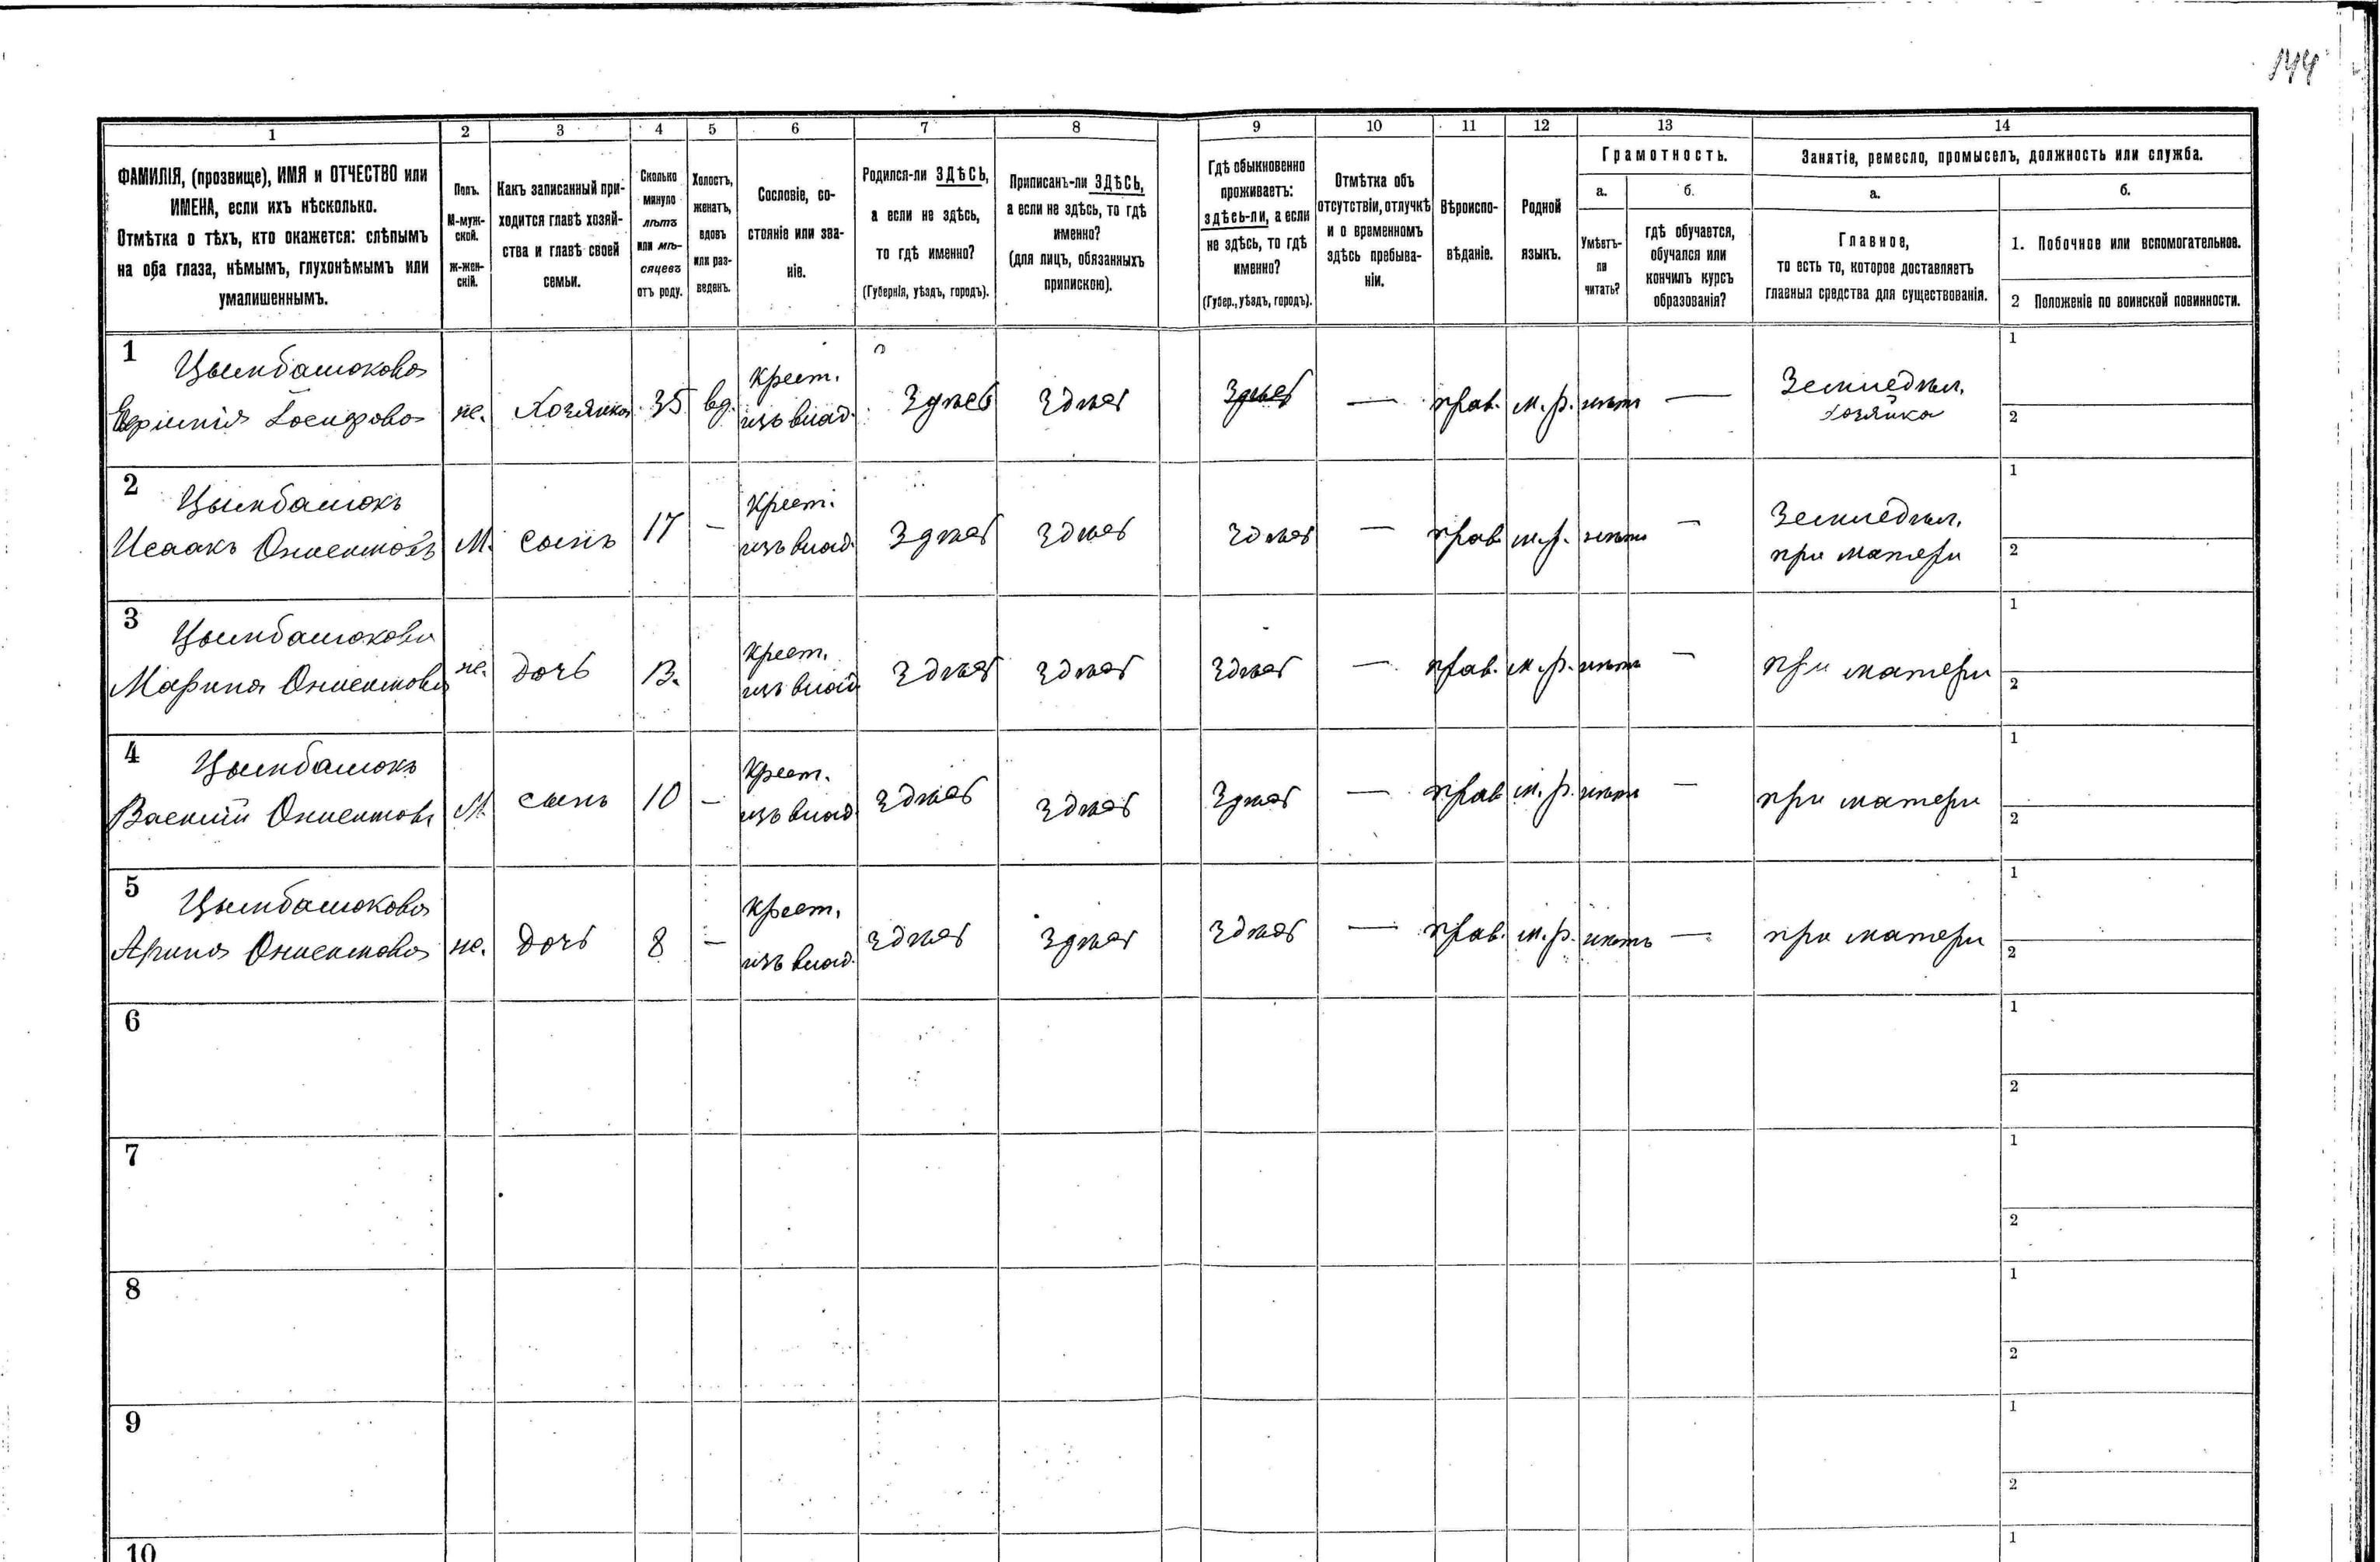 144
1 2 3 4 5 6 7 8 9 10 11 12 13 14
ФАМИЛІЯ, (прозвище), ИМЯ и ОТЧЕСТВО или
ИМЕНА, если ихъ нѣсколько.
Отмѣтка о тѣхъ, кто окажется: слѣпымъ
на оба глаза, нѣмымъ, глухонѣмымъ или
умалишеннымъ.
Полъ.
М-муж-
ской.
Ж-жен-
скій.
Какъ записанный при-
ходится главѣ хозяй-
ства и главѣ своей
семьи.
Сколько
минуло
лѣтъ
или мѣ-
сяцевъ
отъ роду.
Холостъ,
женатъ,
вдовъ
или раз-
веденъ.
Сословіе, со-
стояніе или зва-
ніе.
Родился-ли ЗДѢСЬ,
а если не здѣсь,
то гдѣ именно?
(Губернія, уѣздъ, городъ).
Приписанъ-ли ЗДѢСЬ,
а если не здѣсь, то гдѣ
именно?
(для лицъ, обязанныхъ
припискою).
Гдѣ обыкновенно
проживаетъ:
здѣсь-ли, а если
не здѣсь, то гдѣ
именно?
(Губер., уѣздъ, городъ).
Отмѣтка объ
отсутствіи, отлучкѣ
и о временномъ
здѣсь пребыва-
ніи.
Вѣроиспо-
вѣданіе.
Родной
языкъ.
Грамотность.
а.
Умѣетъ-
ли
читать?
б.
гдѣ обучается,
обучался или
кончилъ курсъ
образованія?
Занятіе, ремесло, промыселъ, должность или служба.
а.
Главное,
то есть то, которое доставляетъ
главныя средства для существованія.
б.
1. Побочное или вспомогательное.
2 Положеніе по воинской повинности.
1 Цымбалюкова Крест. Земледѣл. 1
Іосифова ж. Хозяйка 35 вд. изъ влад. Здѣсь Здѣсь Здѣсь — прав. м.р. нѣтъ — хозяйка 2
2 Цымбалюкъ Крест. Земледѣл. 1
Исаакъ Онисимовъ М. сынъ 17 — изъ влад. Здѣсь Здѣсь Здѣсь — прав. м.р. нѣтъ — при матери 2
3 Цымбалюкова Крест. 1
Марина Онисимова ж. дочь 13. изъ влад. Здѣсь Здѣсь Здѣсь — прав. м.р. нѣтъ — при матери 2
4 Цымбалюкъ Крест. 1
Василій Онисимовъ М. сынъ 10 — изъ влад. Здѣсь Здѣсь Здѣсь — прав. м.р. нѣтъ — при матери 2
5 Цымбалюкова Крест. 1
Арина Онисимова ж. дочь 8 — изъ влад. Здѣсь Здѣсь Здѣсь — прав. м.р. нѣтъ — при матери 2
6 1
2
7 1
2
8 1
2
9 1
2
10 1